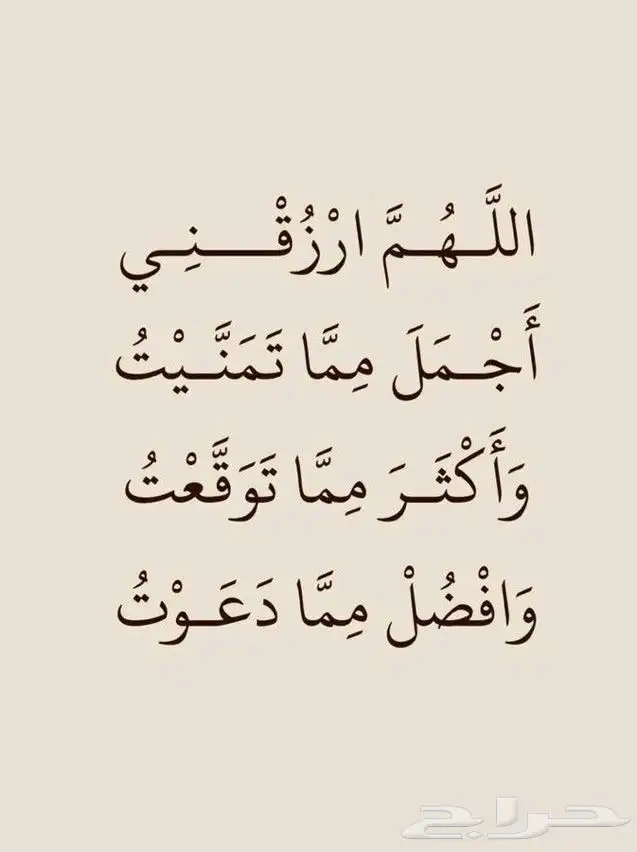 اللَّـهُـمَّ ارْزُقْـــنِـي
أَجْـمَلَ مِمَّا تَمَنَّـيْتُ
وَأَكْثَـرَ مِمَّا تَوَقَّعْتُ
وَافْضُلْ مِمَّا دَعَـوْتُ
حراج